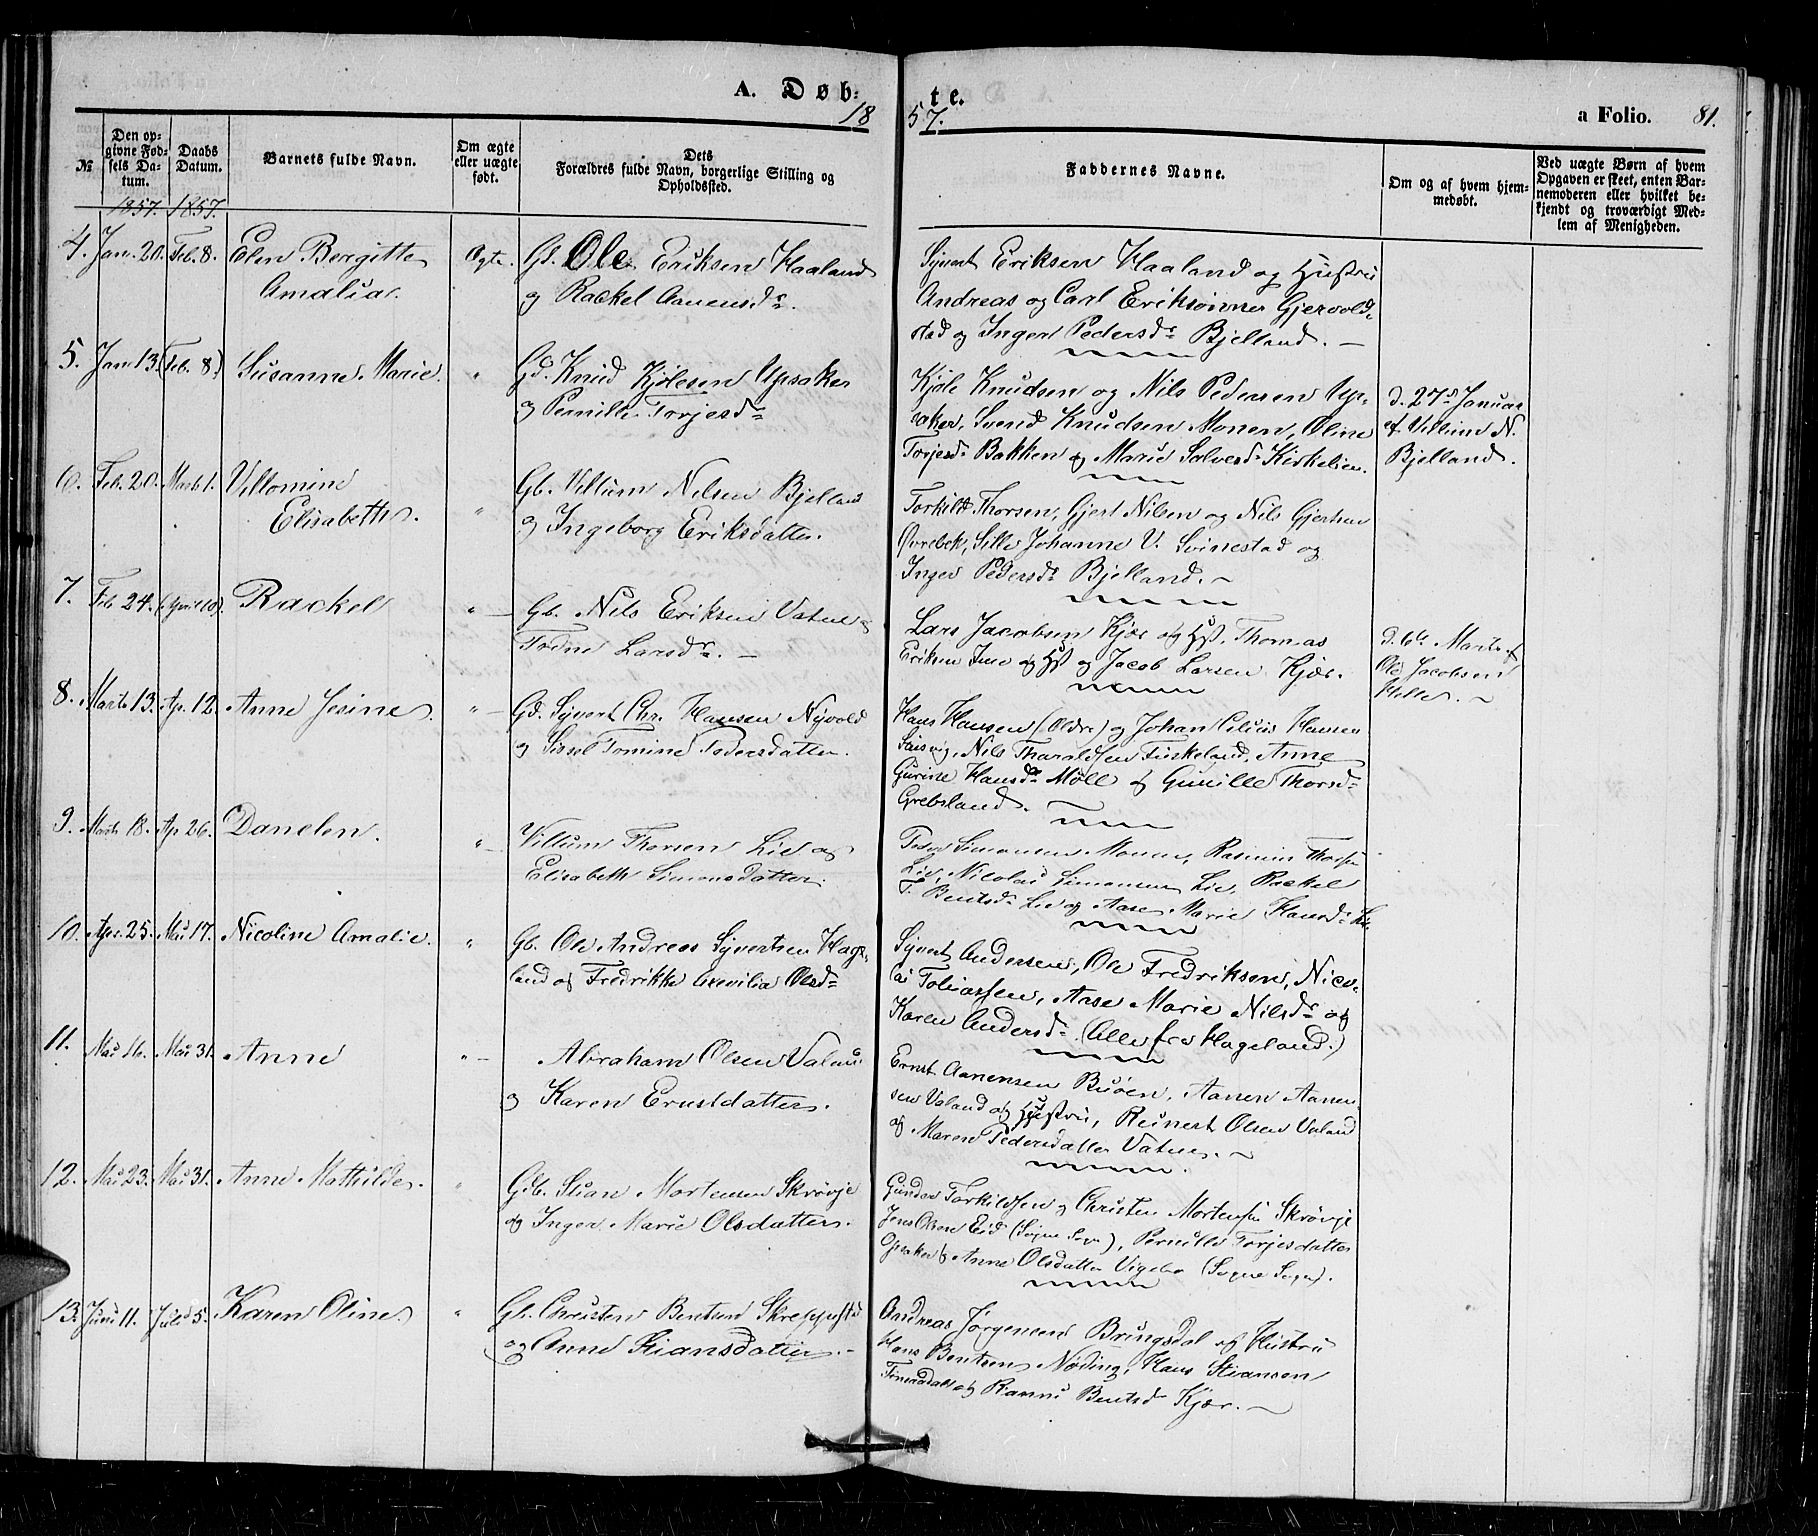 A. Døb-
te.
1857.
a Folio. 81.
№
Den op-
givne Fød-
sels Da-
tum.
Daabs
Datum.
Barnets fulde Navn.
Om ægte
eller uægte
født.
Dets
Forældres fulde Navn, borgerlige Stilling og
Opholdssted.
Faddernes Navne.
Om og af hvem hjem-
medøbt.
Ved uægte Børn af hvem
Opgaven er skeet, enten Bar-
nemoderen eller hvilket be-
kjendt og troværdigt Med-
lem af Menigheden.
1857. 1857.
4. Jan. 20. Feb. 8. Elen Bergitte
Amalia.
Ægte.
Gd. Ole Eriksen Haaland
og Rackel Aanensdr.
Syvert Eriksen Haaland og Hustru
Andreas og Carl Eriksønner Gjervold-
stad og Inger Pedersdr Bjelland. —
5. Jan. 13. (Feb. 8.) Susanne Marie.
"
Gd. Knud Kjølesen Upsaker
og Pernille Torjesdr
Kjøle Knudsen og Nils Pedersen Up-
saker, Svend Knudsen Monen, Oline
Torjesdr Bakken og Marie Salvesdr Kirkelien.
d. 27de Januar
af Villum N.
Bjelland.
6. Feb. 20. Marts 1. Villomine
Elisabeth.
"
Gb. Villum Nilsen Bjelland
og Ingeborg Eriksdatter.
Torkild Thorsen, Gjert Nilsen og Nils Gjertsen
Øvrebek, Sille Johanne V. Svinestad og
Inger Pedersdr Bjelland. —
7. Feb. 24. (April 10). Rackel
" —
Gb. Nils Eriksen Vatne og
Todne Larsdr. —
Lars Jacobsen Kjær og Hst. Thomas
Eriksen Ime og Hst og Jacob Larsen Kjær.
d. 6te Marts af
Ole Jacobsen
Hille. —
8. Marts 13. Ap. 12. Anne Jesine.
" —
Gd. Syvert Chr. Hansen Nyvold
og Sissel Tomine Pedersdatter.
Hans Hansen (Ældre) og Johan Cilius Hansen
Nils Tharaldsen Finkeland, Anne
Gurine Hansdr Møll og Gunille Thorsdr
Grebsland.
9. Marts 18. Ap. 26. Danelen.
" —
Villum Thorsen Lie og
Elisabeth Simonsdatter.
Peder Simonsen Monen, Rasmus Thorsen
Lie, Nicolai Simonsen Lie, Rackel
T. Bentsdr Lie og Aase Marie Hansdr Lie
10. Apr. 25. Mai 17. Nicoline Amalie.
"
Gb. Ole Andreas Syvertsen Hage-
land og Fredrikke Olsdr
Syvert Andersen, Ole Fredriksen, Nico-
lai Tobiassen, Aase Marie Nilsdr og
Karen Andersdr (Alle fra Hageland.)
11. Mai 16. Mai 31. Anne
" —
Abraham Olsen Valand
og Karen Ernstdatter.
Ernst Aanensen Buøen, Aanen Aanen-
sen Valand og Hustru, Reinert Olsen Valand
og Maren Pedersdatter Vatne. —
12. Mai 23. Mai 31. Anne Mathilde.
"
Gdb. Stian Mortensen Skrøvje
og Inger Marie Olsdatter.
Gunder Torkildsen og Christen Mortensen Skrøvje
Jens Olsen Eid (Søgne Sogn), Pernille Torjesdatter
Opsaker og Anne Olsdatter Vigebo (Søgne Sogn).
13. Juni 11. Juli 5. Karen Oline.
"
Gb. Christen Bentsen Skreppstad
og Anne Stiansdatter. —
Andreas Jørgensen Bringsdal og Hustru
Hans Bentsen Nøding, Hans Stiansen
og Bentsdr Kjær. —